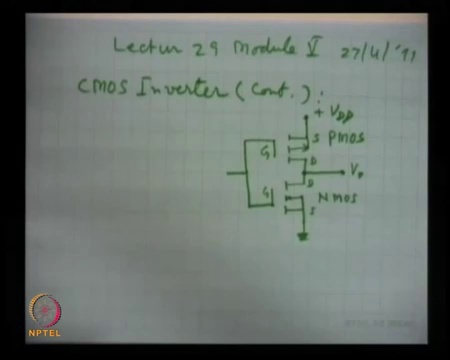 Lectur 29 Module V 27/4/'91
CMOS Inverter (Cont.) :
+ VDD
S PMOS
G
D
D
Vo
G
NMOS
S
NPTEL